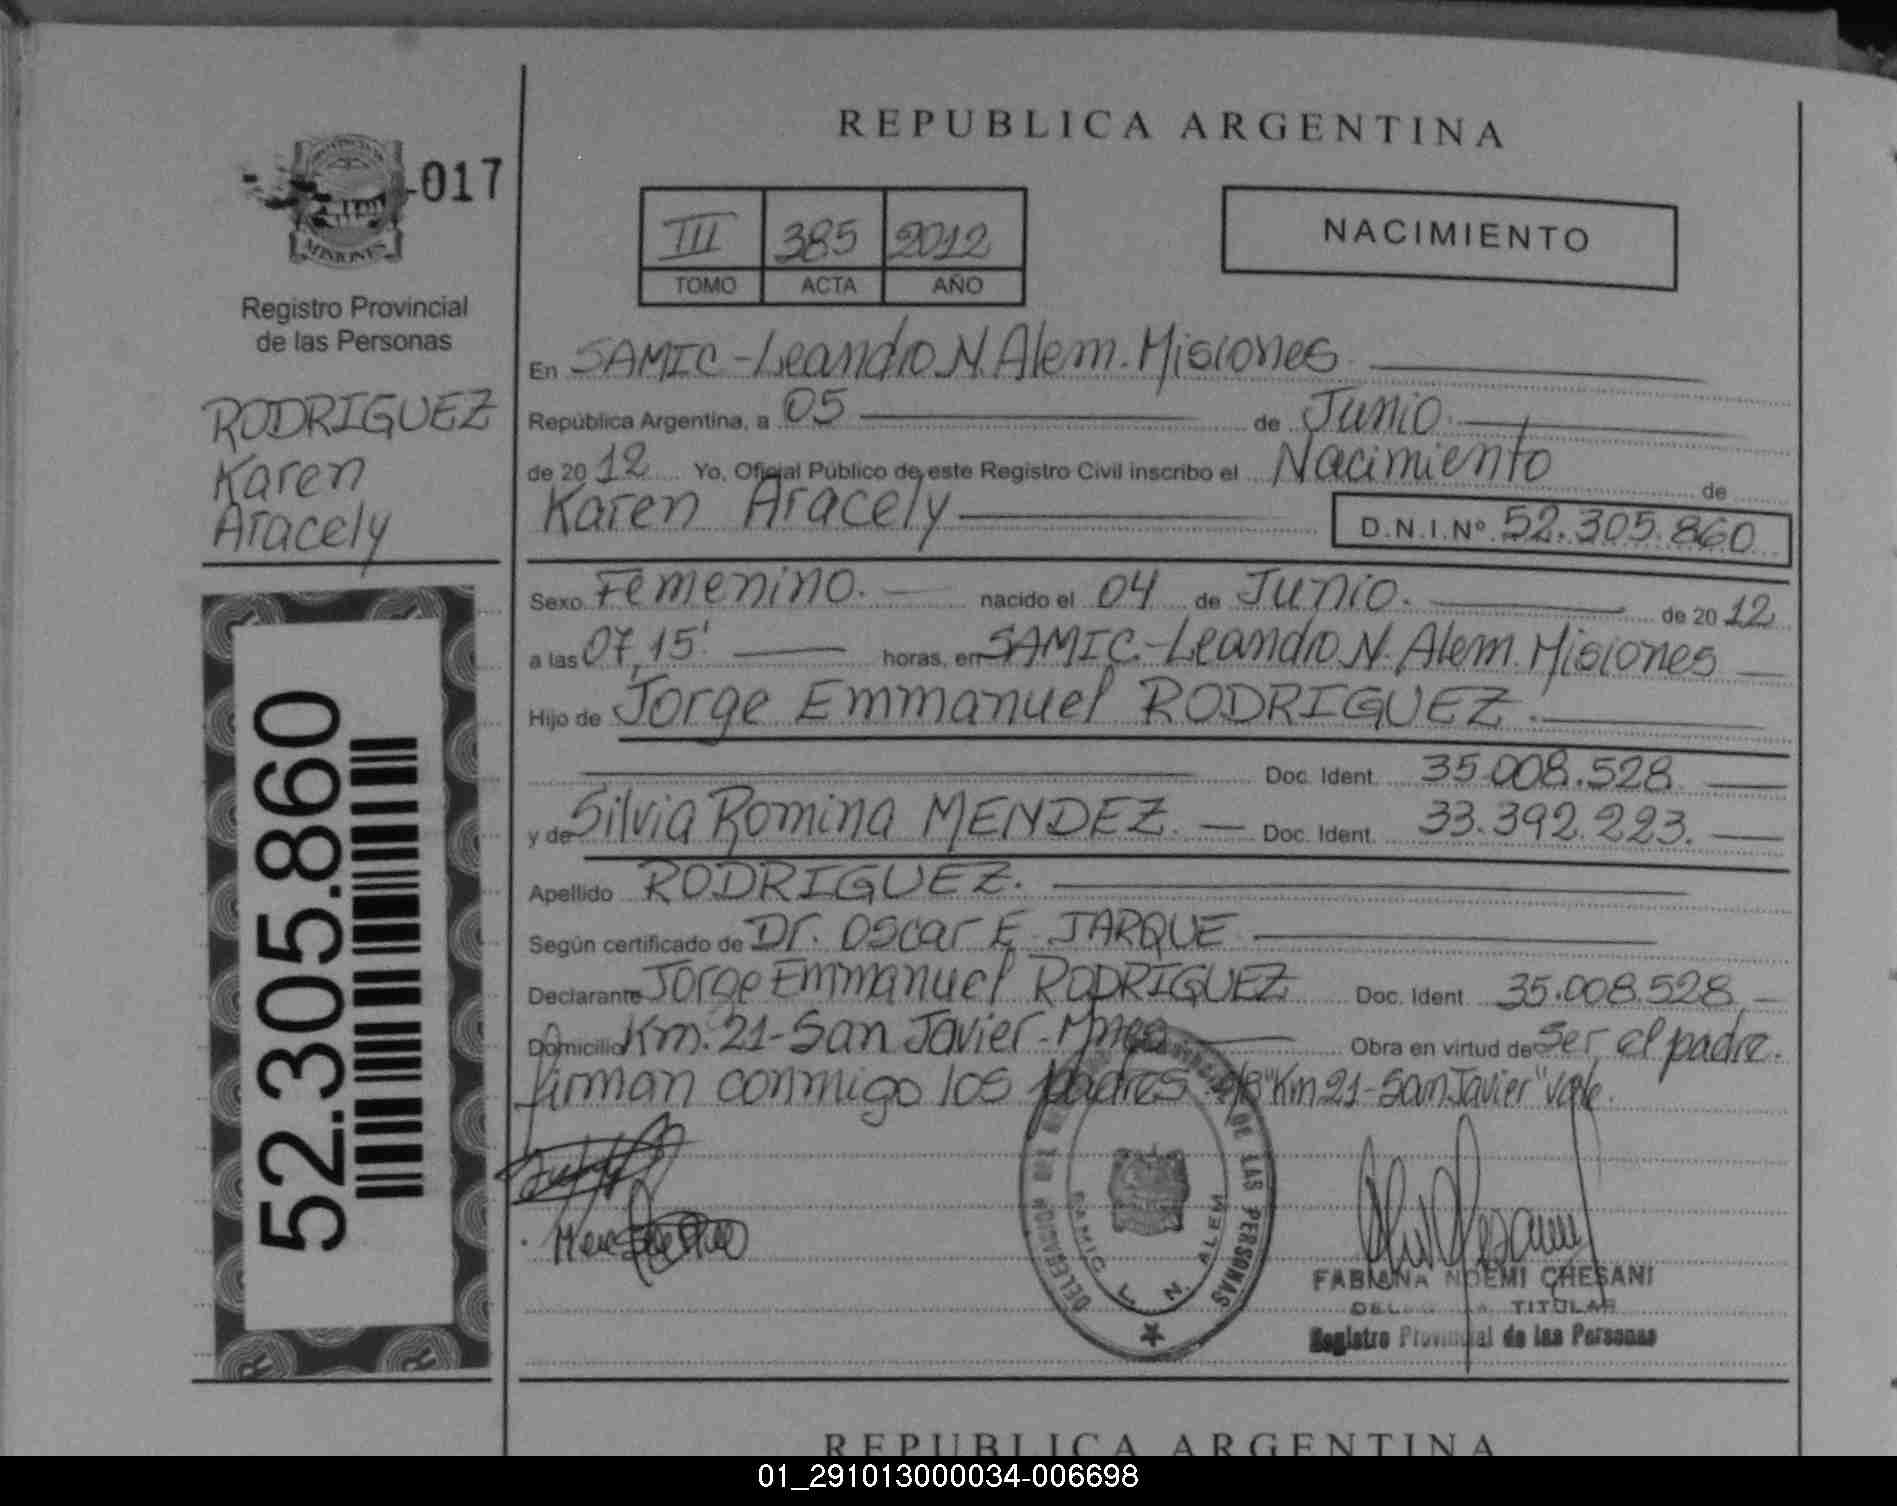 -017
MISIONES
Registro Provincial
de las Personas
RODRIGUEZ
Karen
Aracely
52.305.860
REPUBLICA ARGENTINA
III 385 2012
TOMO ACTA AÑO
NACIMIENTO
En SAMIC - Leandro N. Alem. Misiones
República Argentina, a 05 de Junio.
de 20 12 Yo, Oficial Público de este Registro Civil inscribo el Nacimiento de
Karen Aracely D.N.I.Nº 52.305.860
Sexo Femenino. nacido el 04 de Junio. de 20 12
a las 07,15' horas, en SAMIC - Leandro N. Alem. Misiones
Hijo de Jorge Emmanuel RODRIGUEZ.
Doc. Ident. 35.008.528.
y de Silvia Romina MENDEZ. Doc. Ident. 33.392.223.
Apellido RODRIGUEZ.
Según certificado de Dr. Oscar E. JARQUE
Declarante Jorge Emmanuel RODRIGUEZ Doc. Ident 35.008.528
Domicilio Km. 21 - San Javier - Mnes Obra en virtud de Ser el padre.
firman conmigo los padres. s/r "Km 21 - San Javier" vale.
DELEGACION DE LAS PERSONAS
SAMIC L. N. ALEM
FABIANA NOEMI CHESANI
TITULAR
Registro Provincial de las Personas
REPUBLICA ARGENTINA
01_291013000034-006698